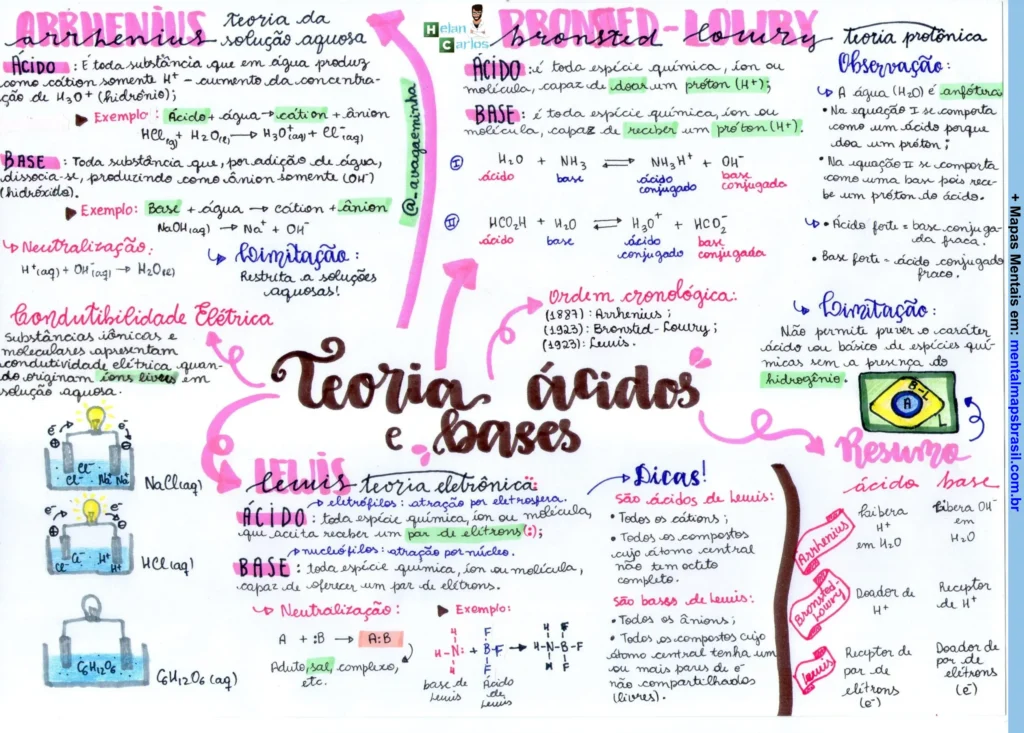 ARRHENIUS
arrhenius
teoria da
solução aquosa
ÁCIDO : É toda substância que em água produz
como cátion somente H⁺ - aumento da concentra-
ção de H₃O⁺ (hidrônio);
Exemplo: Ácido + água → cátion + ânion
HCl(g) + H₂O(l) → H₃O⁺(aq) + Cl⁻(aq)
BASE : Toda substância que, por adição de água,
dissocia-se, produzindo como ânion somente (OH⁻)
(hidróxido).
Exemplo: Base + água → cátion + ânion
NaOH(aq) → Na⁺ + OH⁻
Neutralização:
H⁺(aq) + OH⁻(aq) → H₂O(l)
Limitação :
Restrita a soluções
aquosas!
Helan
Carlos
@avagaeminha
BRONSTED-LOWRY
bronsted lowry
teoria protônica
ÁCIDO : é toda espécie química, íon ou
molécula, capaz de doar um próton (H⁺);
BASE : é toda espécie química, íon ou
molécula, capaz de receber um próton (H⁺).
I H₂O + NH₃ ⇌ NH₃H⁺ + OH⁻
ácido base ácido conjugado base conjugada
II HCO₂H + H₂O ⇌ H₃O⁺ + HCO₂⁻
ácido base ácido conjugado base conjugada
Observação:
A água (H₂O) é anfótera
• Na equação I se comporta
como um ácido porque
doa um próton;
• Na equação II se comporta
como uma base pois rece-
be um próton do ácido.
• Ácido forte = base conjuga-
da fraca.
• Base forte = ácido conjugado
fraco.
Limitação:
Não permite prever o caráter
ácido ou básico de espécies quí-
micas sem a presença do
hidrogênio.
Ordem cronológica:
(1887): Arrhenius;
(1923): Bronsted-Lowry;
(1923): Lewis.
Condutibilidade Elétrica
Substâncias iônicas e
moleculares apresentam
condutividade elétrica quan-
do originam íons livres em
solução aquosa.
Teoria ácidos
e bases
e⁻ e⁻
⊕ ⊖
Cl⁻ Cl⁻ Na⁺ Na⁺
NaCl(aq)
e⁻ e⁻
⊕ ⊖
Cl⁻ H⁺ H⁺
HCl(aq)
C₆H₁₂O₆
C₆H₁₂O₆ (aq)
LEWIS
lewis teoria eletrônica:
eletrófilos: atração por eletrosfera.
ÁCIDO : toda espécie química, íon ou molécula,
que aceita receber um par de elétrons(:);
nucleófilos: atração por núcleo.
BASE : toda espécie química, íon ou molécula,
capaz de oferecer um par de elétrons.
Neutralização:
A + :B → A:B
Aduto, sal, complexo,
etc.
Exemplo:
H F H F
H-N: + B-F → H-N-B-F
H F H F
base de Lewis
Ácido de Lewis
Dicas!
São ácidos de Lewis:
• Todos os cátions;
• Todos os compostos
cujo átomo central
não tem octeto
completo.
São bases de Lewis:
• Todos os ânions;
• Todos os compostos cujo
átomo central tenha um
ou mais pares de e⁻
não compartilhados
(livres).
B-L
A
L
Resumo
ácido base
Arrhenius
Libera H⁺ em H₂O
Libera OH⁻ em H₂O
Bronsted-Lowry
Doador de H⁺
Receptor de H⁺
Lewis
Receptor de par de elétrons (e⁻)
Doador de par de elétrons (e⁻)
+ Mapas Mentais em: mentalmapsbrasil.com.br